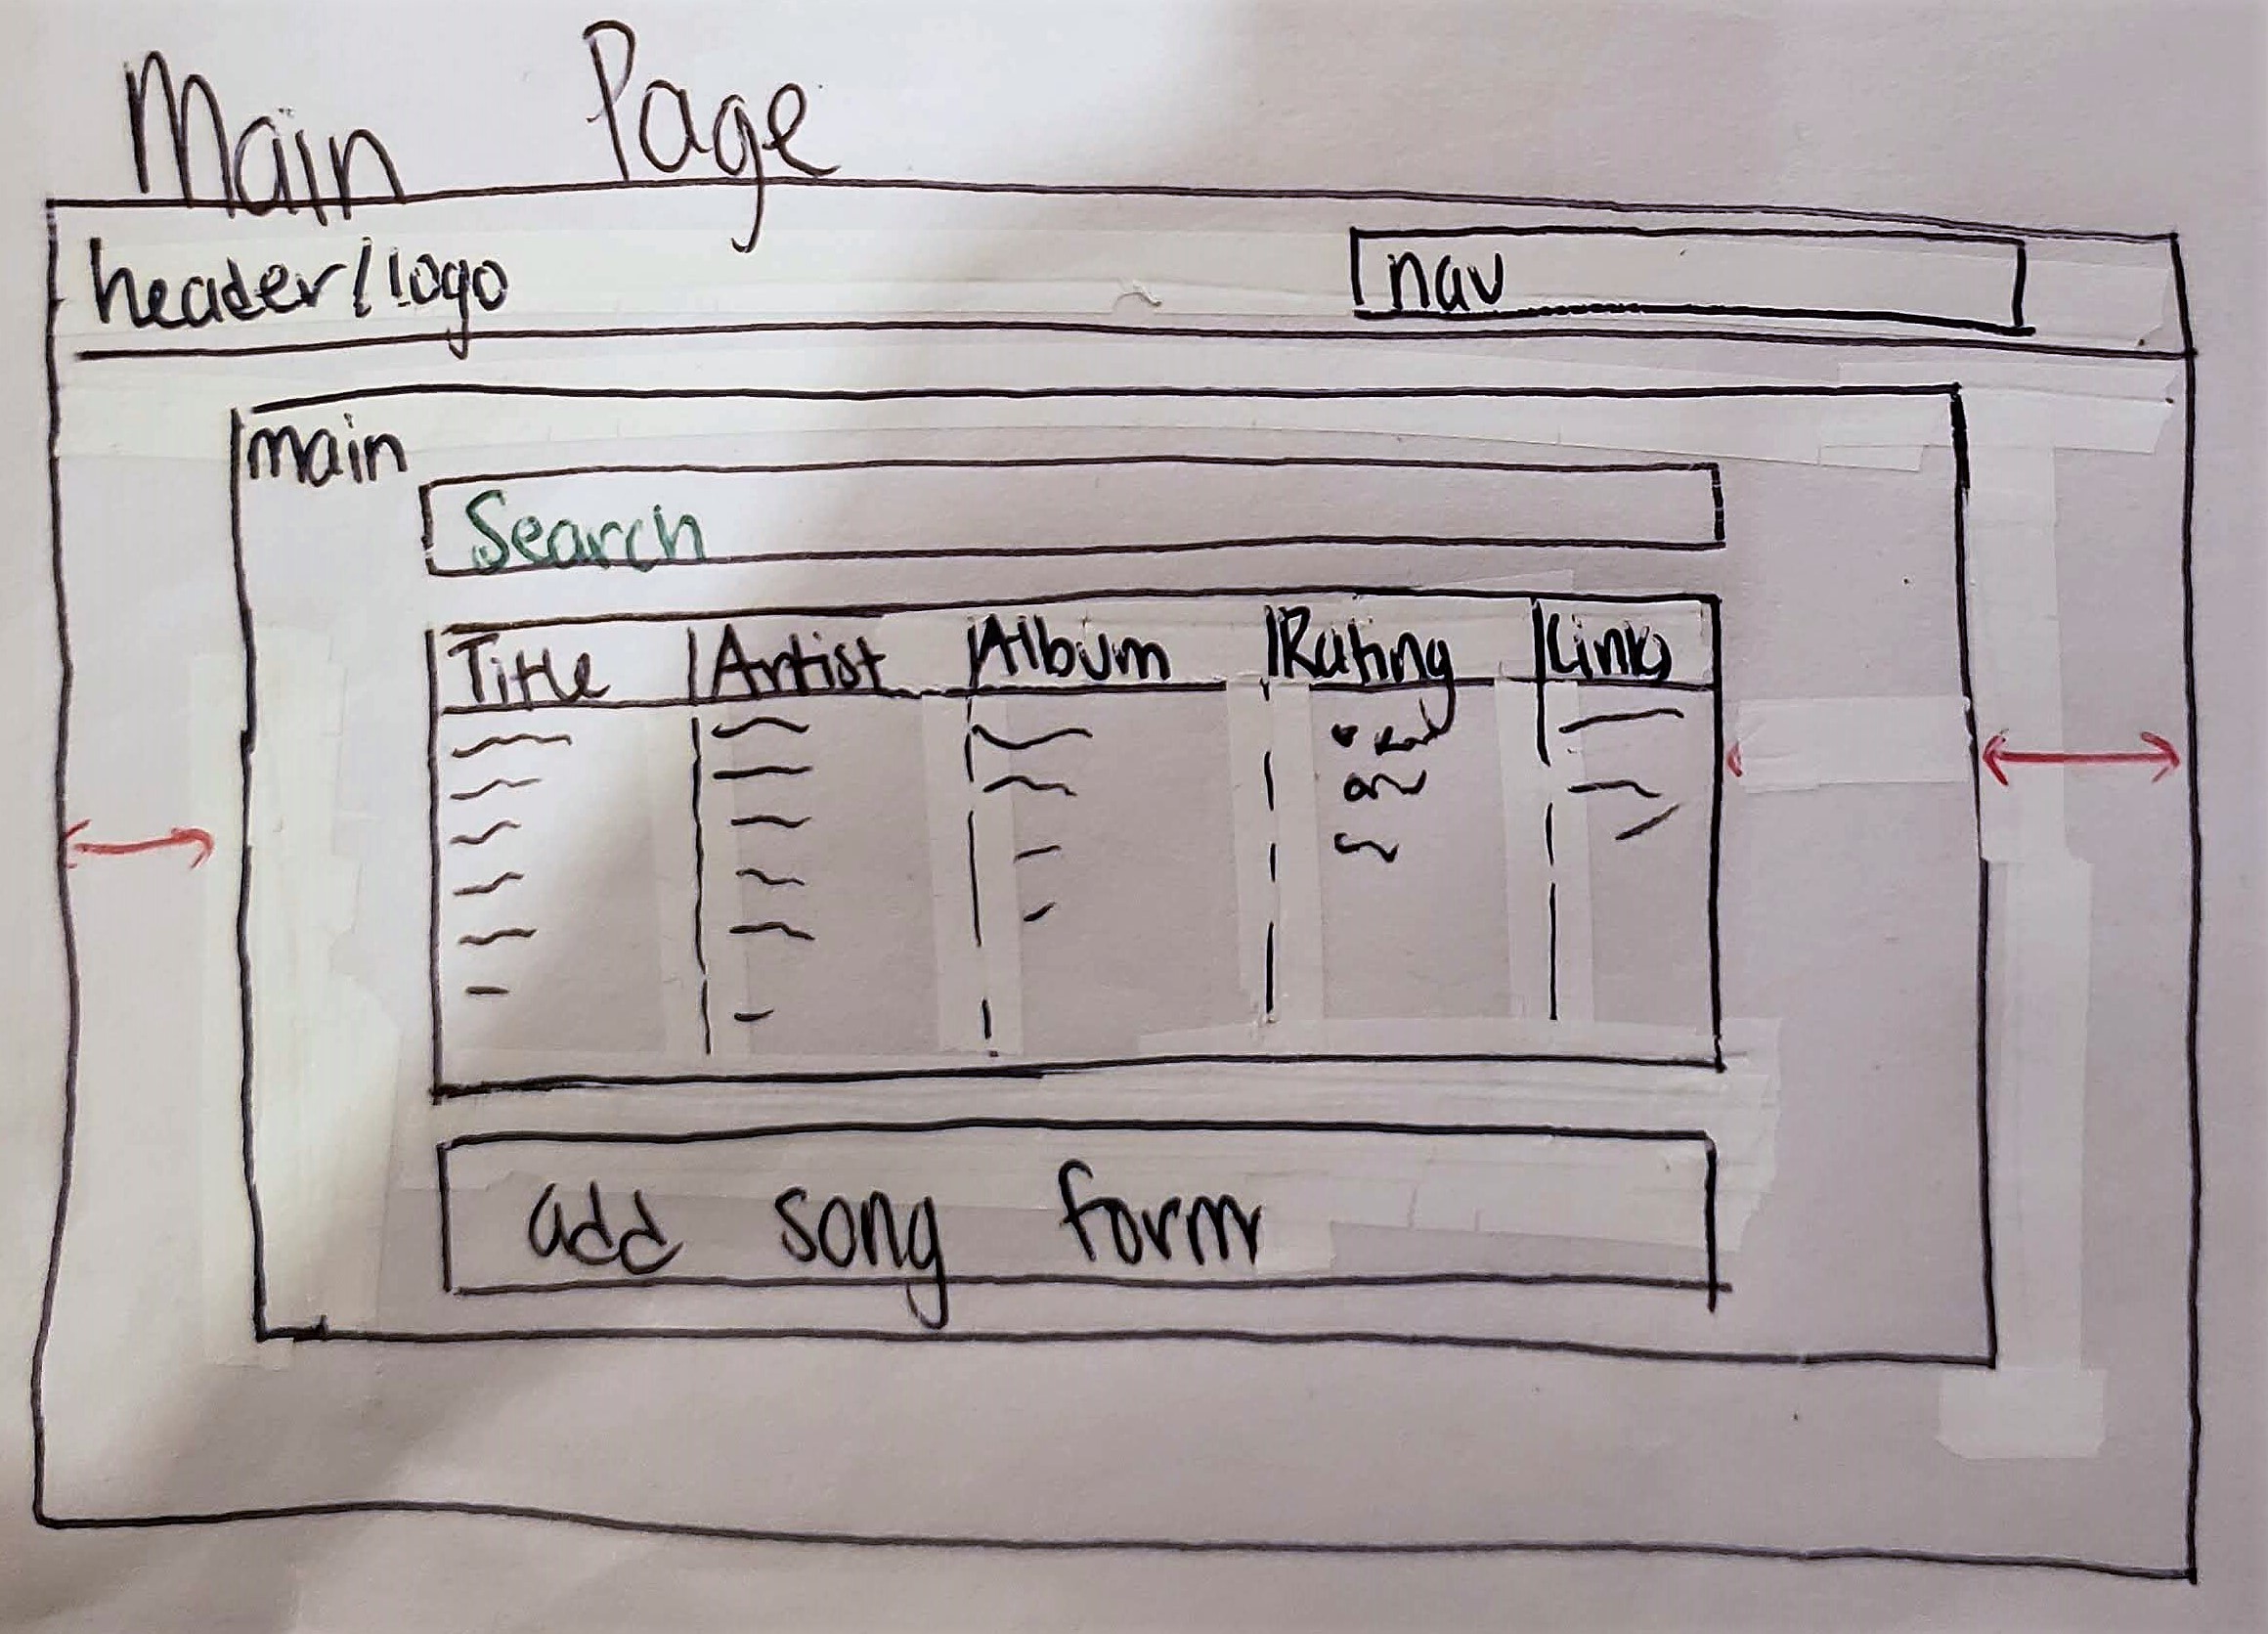 Main Page
header/logo nav
main
Search
Title Artist Album Rating Links
add song form